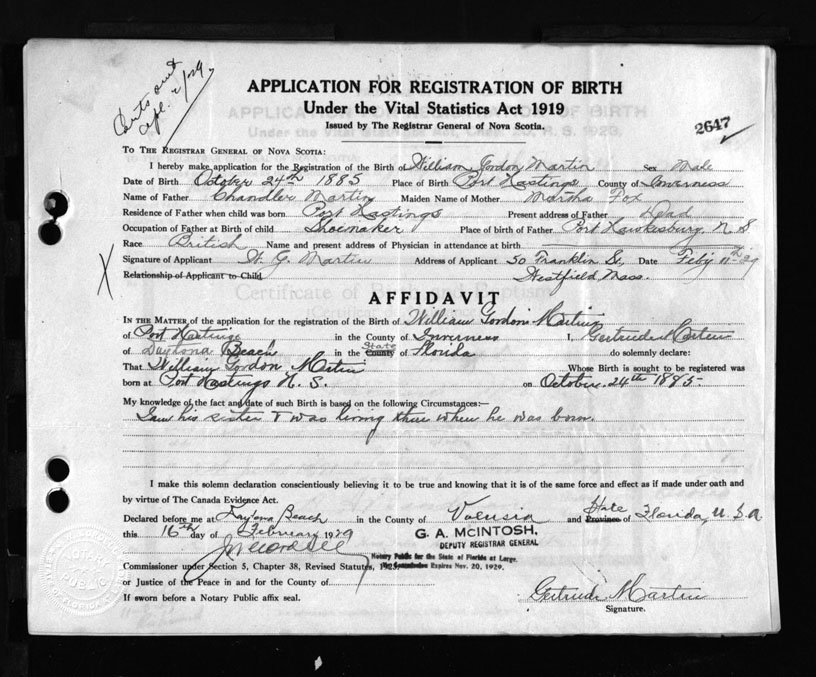 Certs out
Apl. 2/29
APPLICATION FOR REGISTRATION OF BIRTH
Under the Vital Statistics Act 1919
Issued by The Registrar General of Nova Scotia.
2647
TO THE REGISTRAR GENERAL OF NOVA SCOTIA:
I hereby make application for the Registration of the Birth of William Gordon Martin Sex Male
Date of Birth October 24th 1885 Place of Birth Port Hastings County of Inverness
Name of Father Chandler Martin Maiden Name of Mother Martha Fox
Residence of Father when child was born Port Hastings Present address of Father Dead
Occupation of Father at Birth of child Shoemaker Place of birth of Father Port Hawkesbury N.S
Race British Name and present address of Physician in attendance at birth
Signature of Applicant W. G. Martin Address of Applicant 50 Franklin St, Date Feby 11th 29
Relationship of Applicant to Child Westfield Mass.
AFFIDAVIT
IN THE MATTER of the application for the registration of the Birth of William Gordon Martin
of Port Hastings in the County of Inverness I, Gertrude Martin
of Daytona Beach in the County State of Florida do solemnly declare:
That William Gordon Martin Whose Birth is sought to be registered was
born at Port Hastings N.S. on October 24th 1885
My knowledge of the fact and date of such Birth is based on the following Circumstances:—
I am his sister & was living there when he was born.
I make this solemn declaration conscientiously believing it to be true and knowing that it is of the same force and effect as if made under oath and
by virtue of The Canada Evidence Act.
Declared before me at Daytona Beach in the County of Volusia and Province State of Florida, U.S.A.
this 16th day of February 1929
G. A. McINTOSH,
DEPUTY REGISTRAR GENERAL
Notary Public for the State of Florida at Large.
Commissioner under Section 5, Chapter 38, Revised Statutes, 1923 Commission Expires Nov. 20, 1929.
or Justice of the Peace in and for the County of
If sworn before a Notary Public affix seal.
Gertrude Martin
Signature.